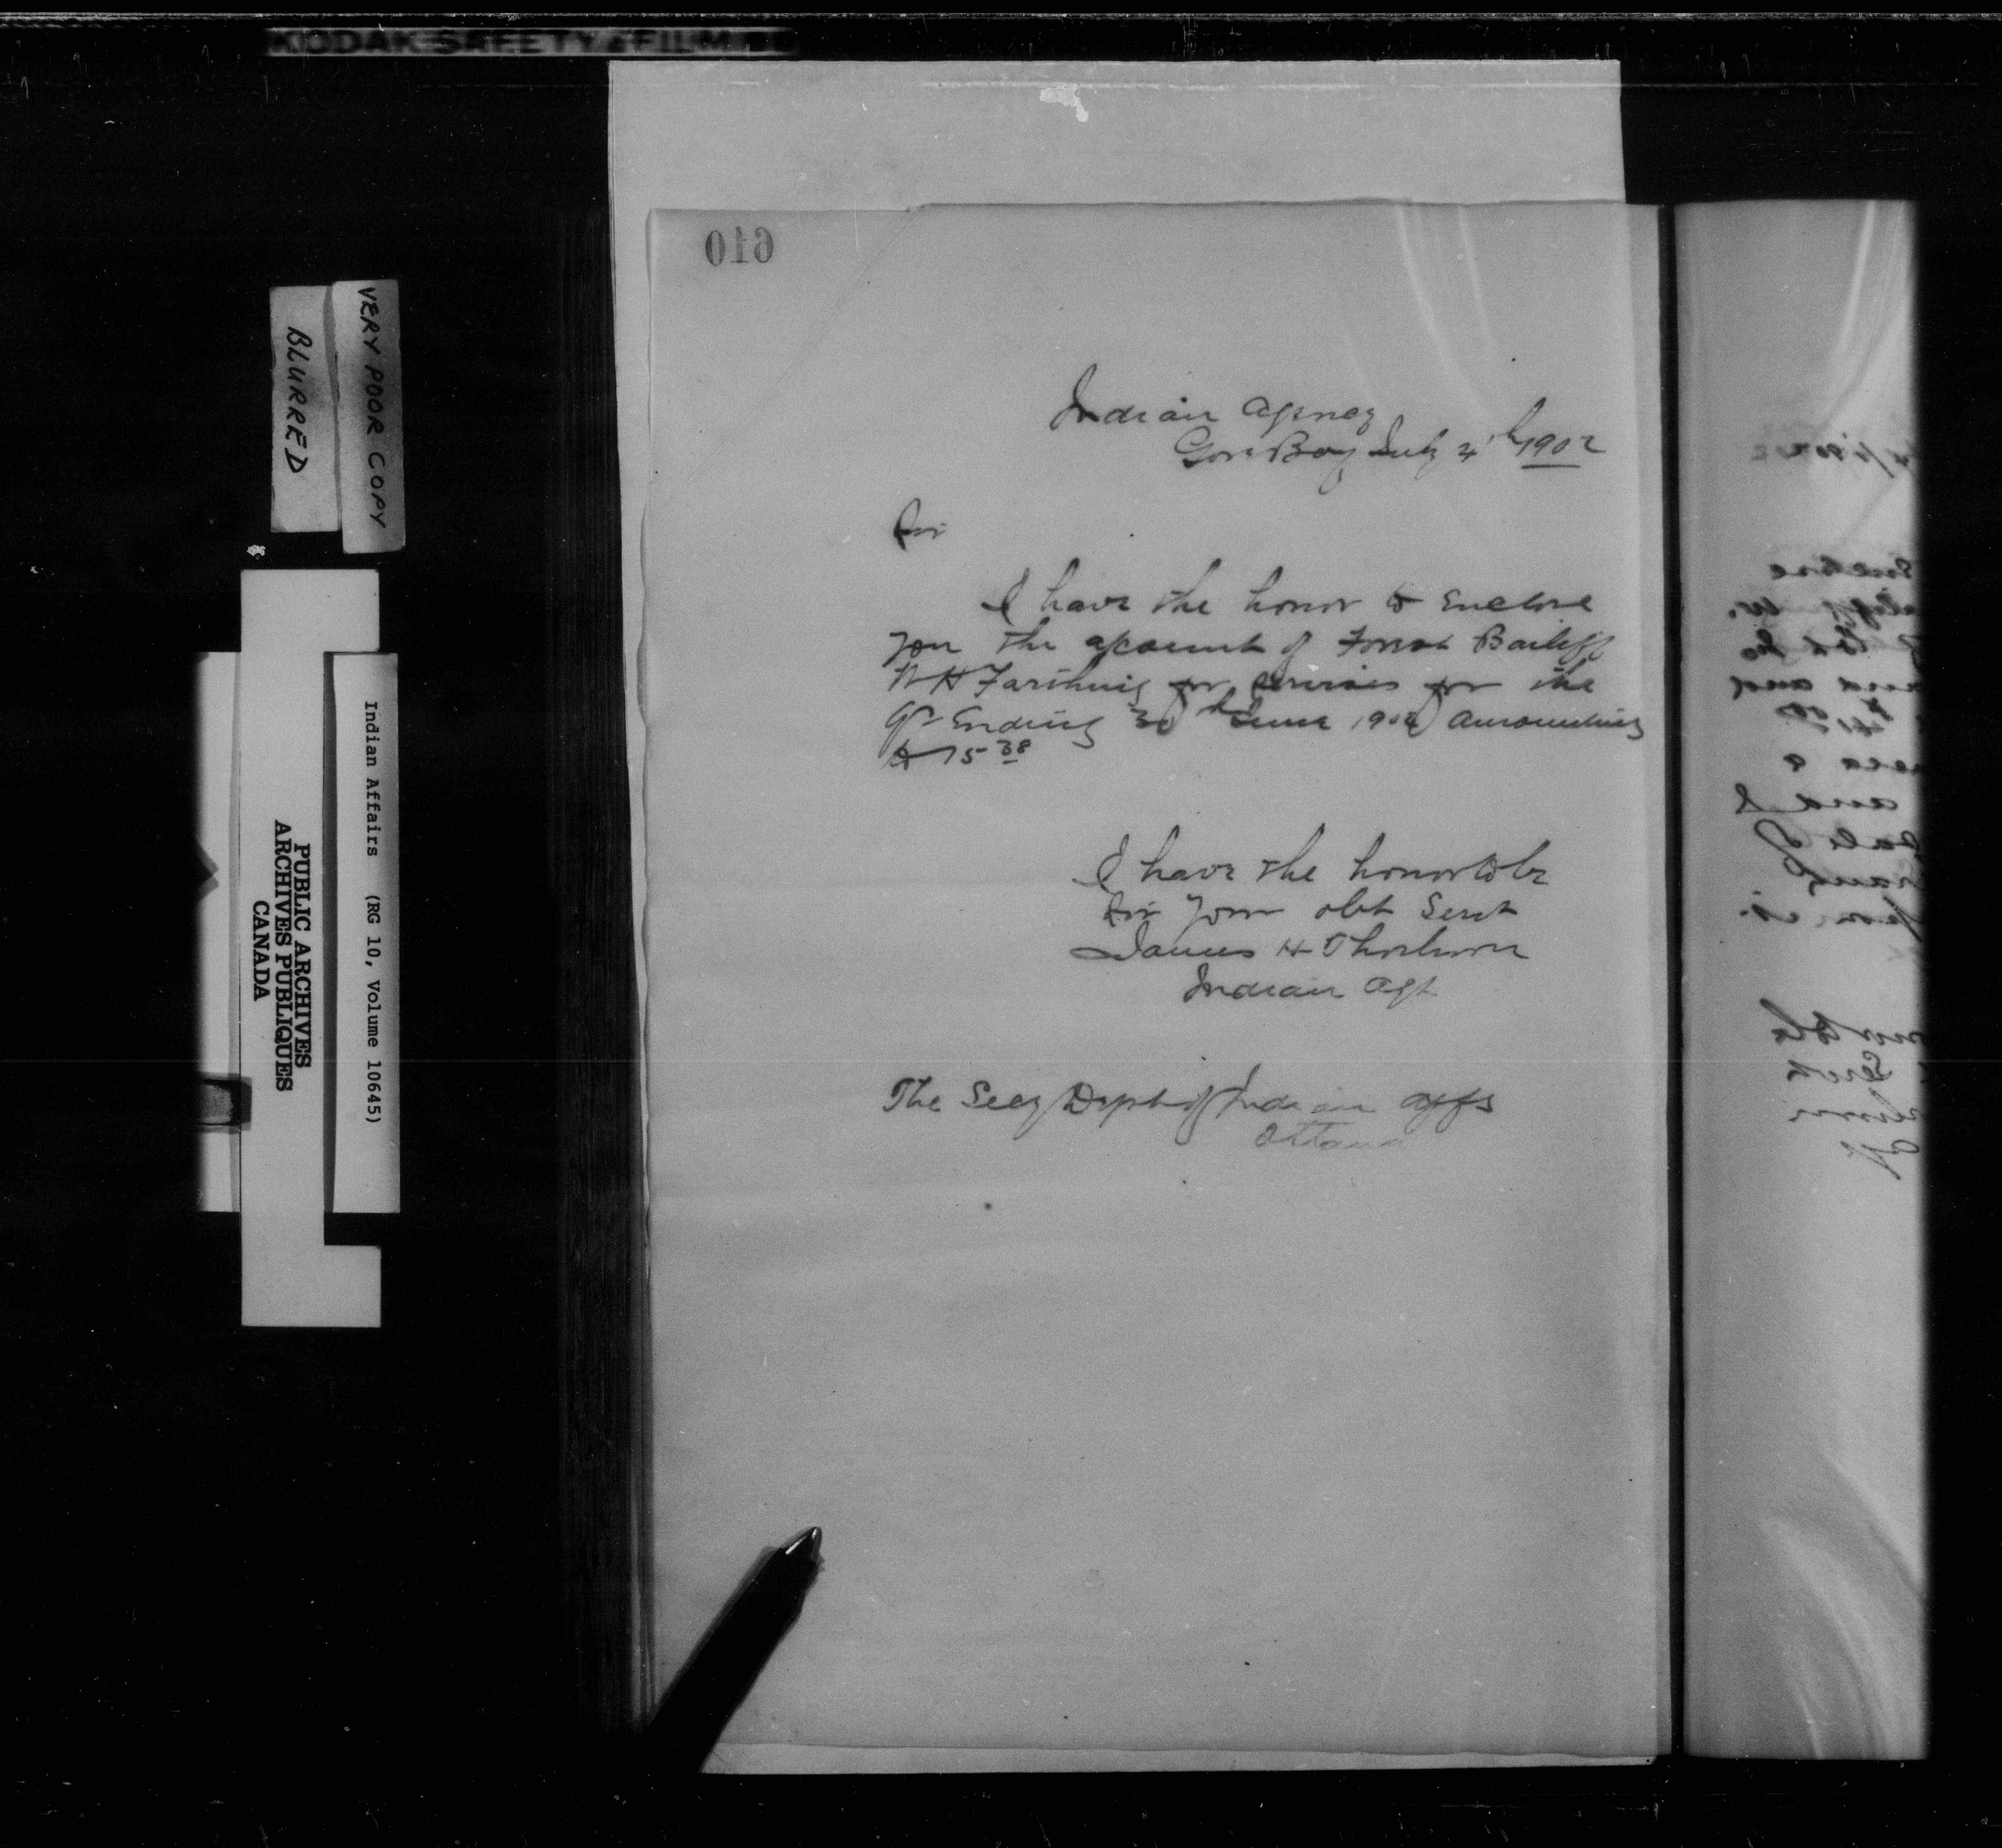 KODAK SAFETY FILM
010
VERY POOR COPY
BLURRED
Indian Affairs (RG 10, Volume 10645)
PUBLIC ARCHIVES
ARCHIVES PUBLIQUES
CANADA
Indian Agency
Gore Bay July 4th 1902
Sir
I have the honor to Enclose
you the account of Forest Bailiff
W H Farthing for services for the
Qr Ending 30th June 1902 amounting
to 15 38
I have the honor to be
Sir Your obt Servt
James H Thorburn
Indian Agt
The Secy Dept of Indian Affs
Ottawa